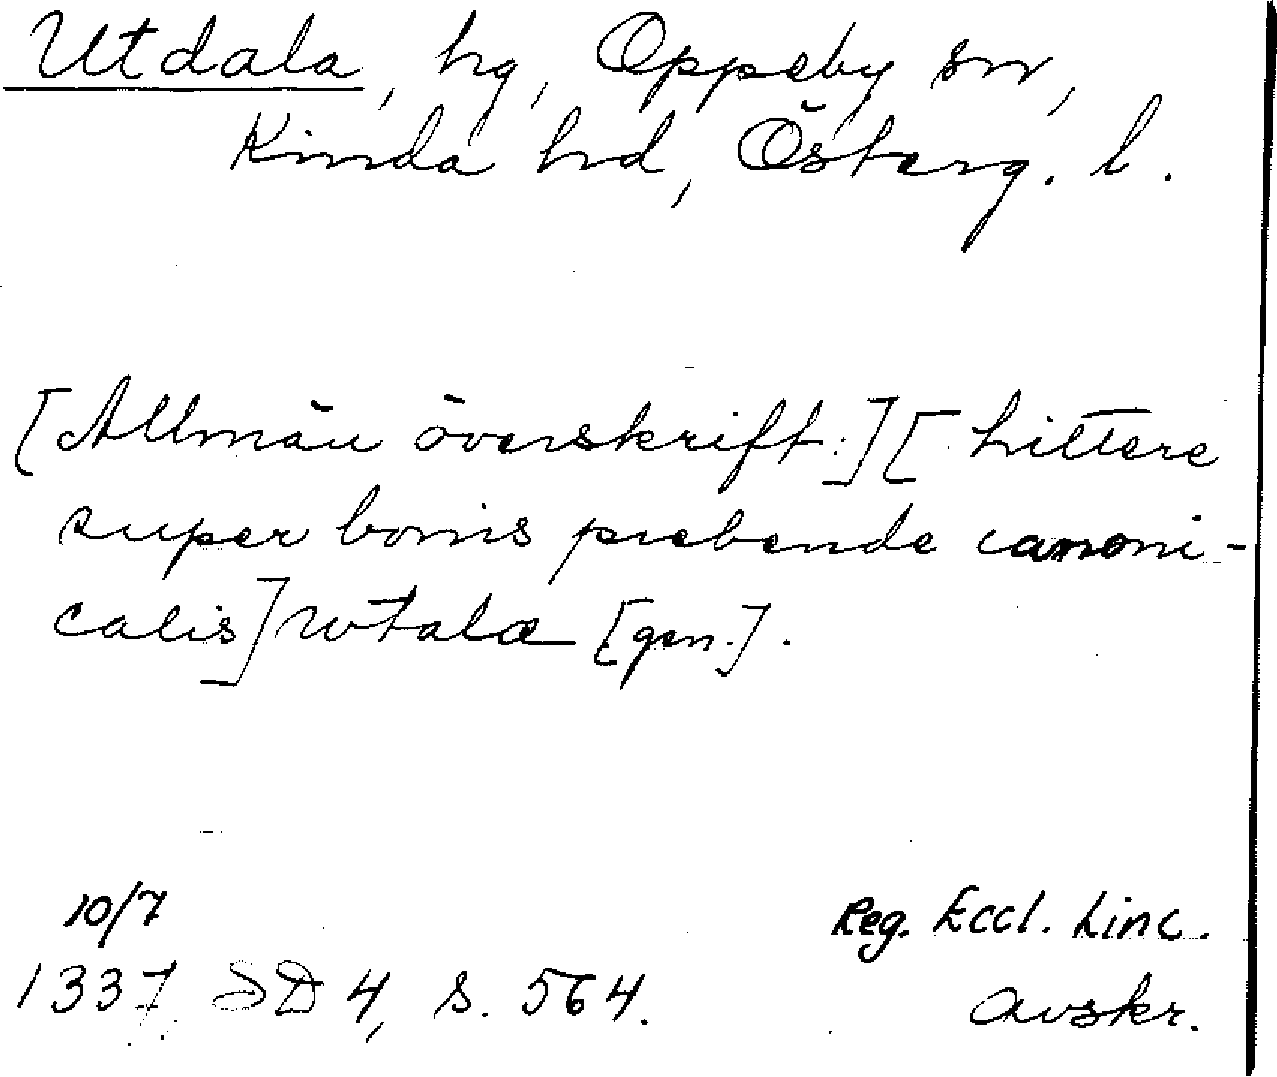 Utdala, hg, Oppeby sn,
Kinda hd, Österg. l.
[Allmän överskrift:] [Littere
super bonis prebende canoni-
calis] wtalæ [gen.].
10/7
Reg. Eccl. Linc.
1337 SD 4, s. 564.
avskr.